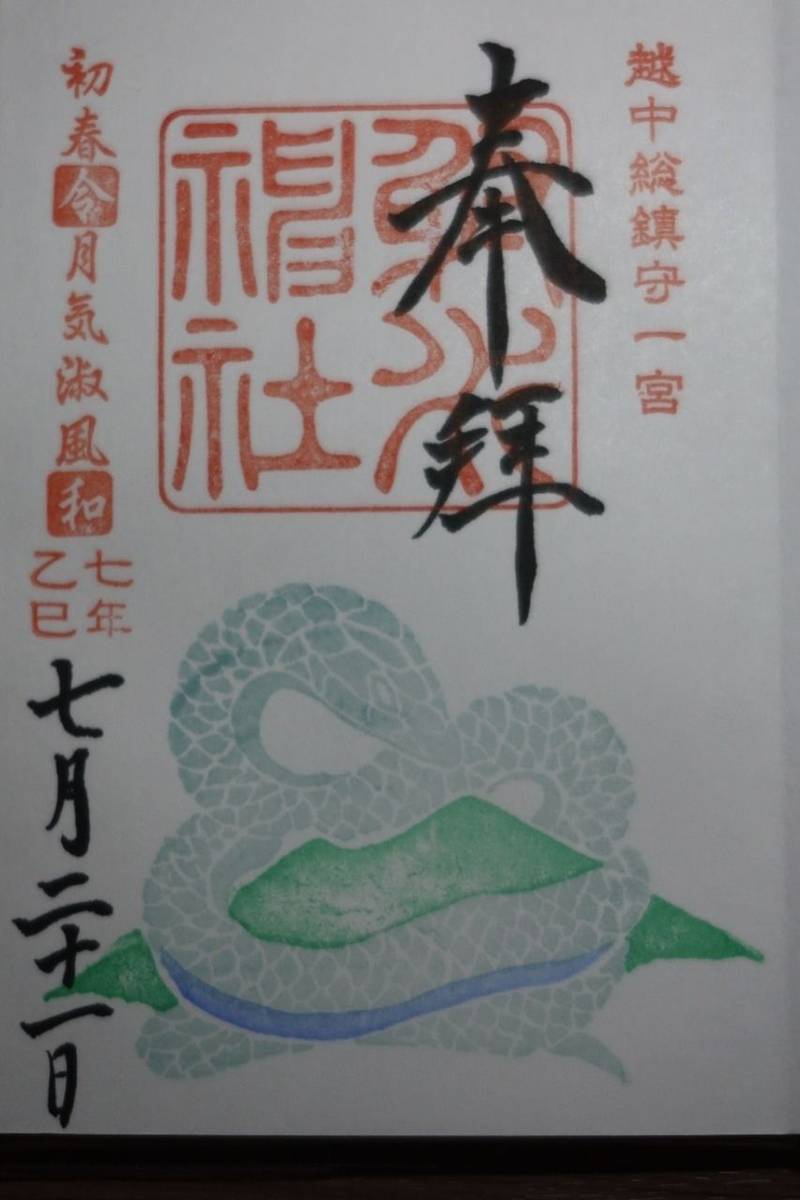 越中総鎮守一宮
奉拝
射水
神社
初春令月気淑風和
七年
乙巳
七月二十一日